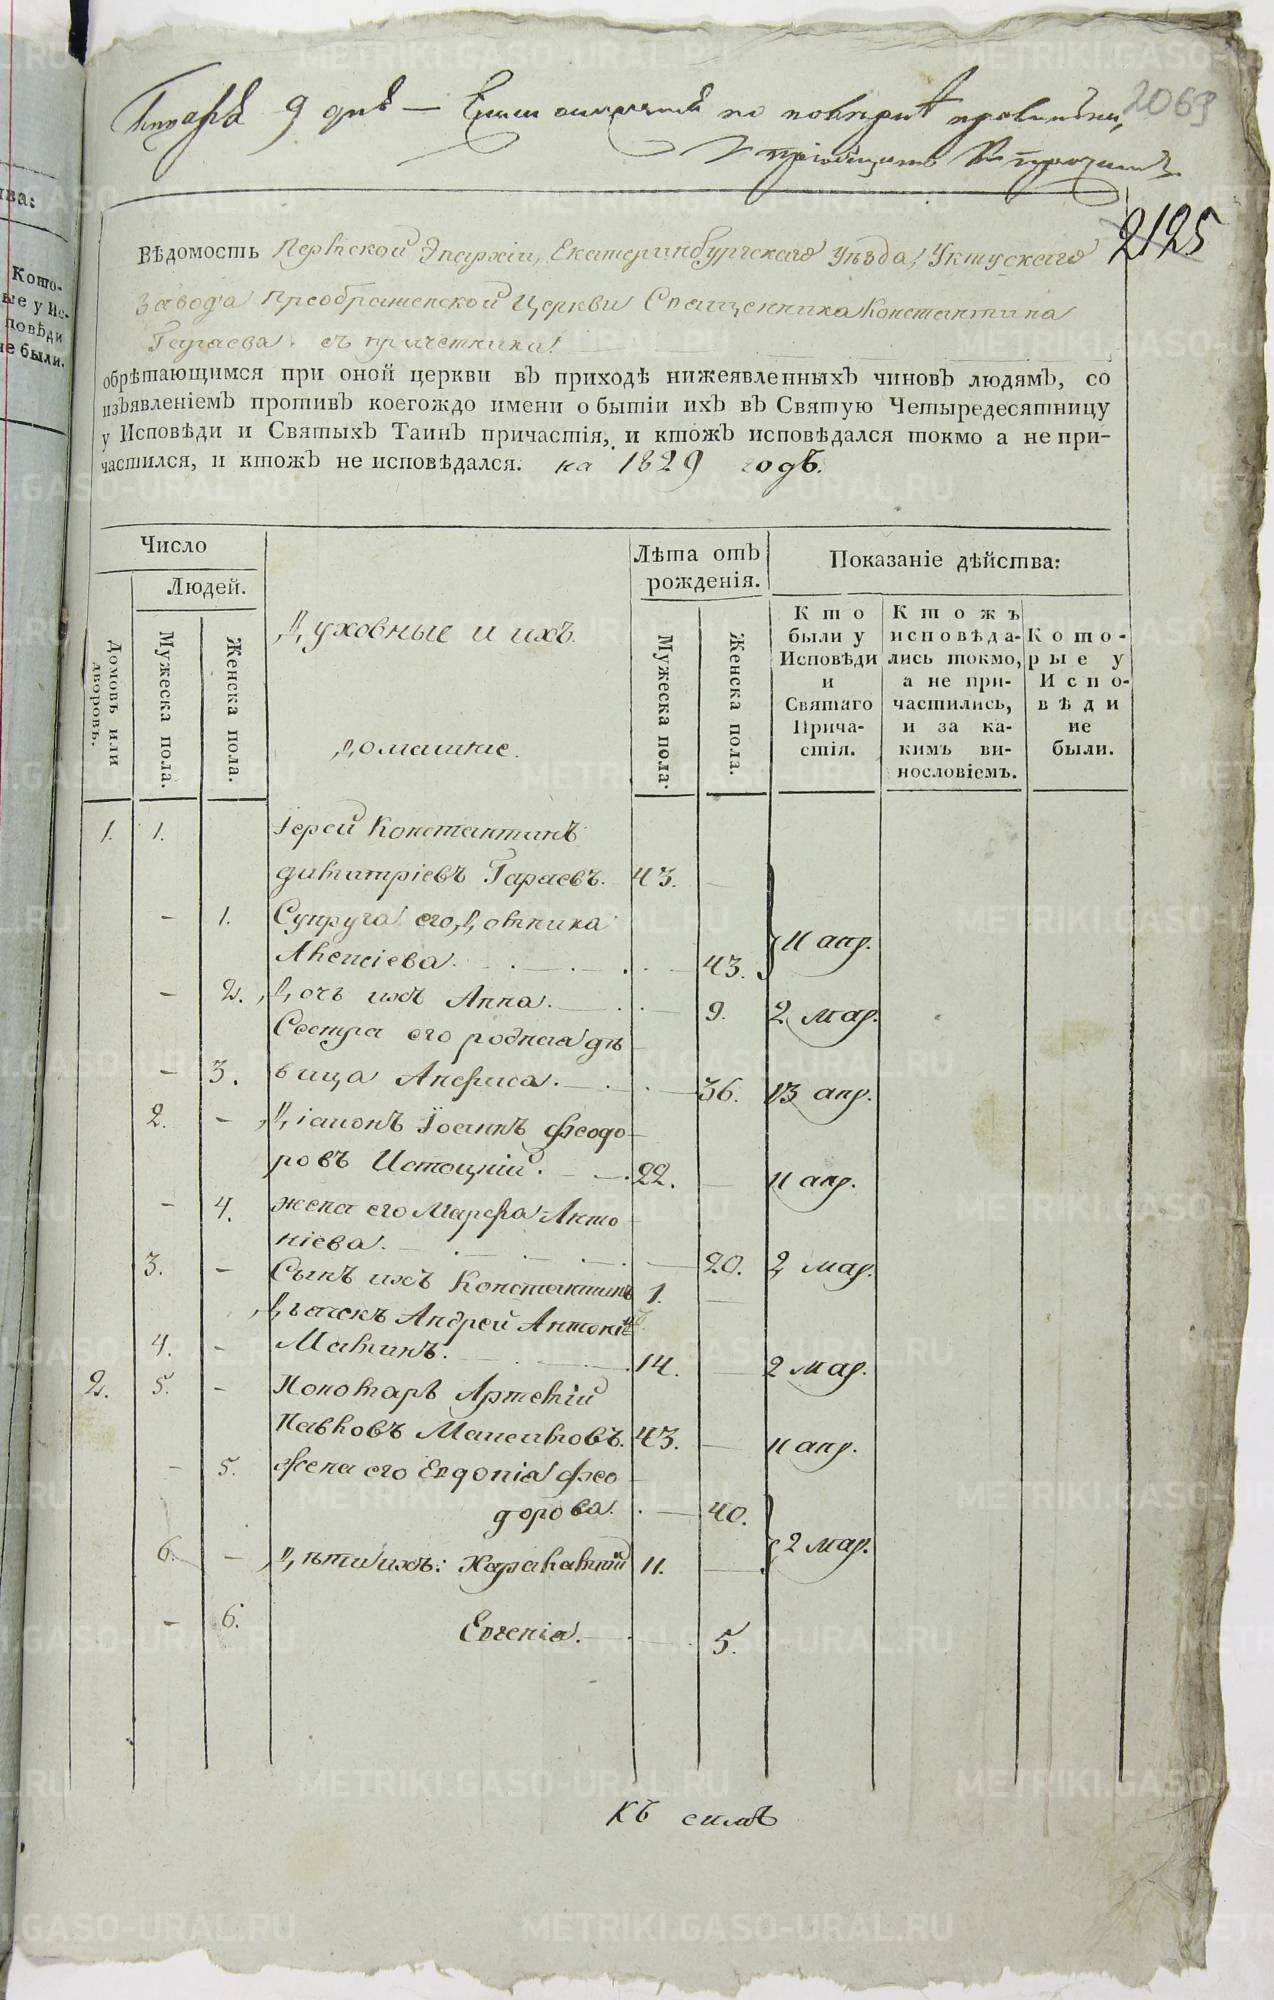 2069
9 дня — по повѣркѣ
2125
Вѣдомость Пермской Эпархіи, Екатеринбургскаго уѣзда, Уктускаго
Завода Преображенской Церкви Священника Константина
Гараева съ причетники:
обрѣтающимся при оной церкви въ приходѣ нижеявленныхъ чиновъ людямъ, со
изъявленіемъ противъ коегождо имени о бытіи ихъ въ Святую Четыредесятницу
у Исповѣди и Святыхъ Таинъ причастія, и ктожъ исповѣдался токмо а не при-
частился, и ктожъ не исповѣдался. на 1829 годъ.
Число
Людей.
Домовъ или дворовъ.
Мужеска пола.
Женска пола.
Духовные и ихъ
домашніе.
Лѣта отъ
рожденія.
Мужеска пола.
Женска пола.
Показаніе дѣйства:
Кто
были у
Исповѣди
и
Святаго
Прича-
стія.
Ктожъ
исповѣда-
лись токмо,
а не при-
частились,
и за ка-
кимъ ви-
нословіемъ.
Кото-
рые у
Испо-
вѣди
не
были.
1. 1. Іерей Константинъ
Димитріевъ Гараевъ. 43. —
— 1. Супруга его Домника
Алексіева. — 43. } 11 апр.
— 2. Дочь ихъ Анна. — 9. 2 мар.
Сестра его родная дѣ
— 3. вица Анфиса. — 36. 13 апр.
2. — Діаконъ Іоаннъ Феодо
ровъ Истоцкій. — 22. — 11 апр.
— 4. жена его Марфа Анто
ніева. — 20. 2 мар.
3. — Сынъ ихъ Константинъ 1. —
Дьячекъ Андрей Антоніевъ
4. — Маминъ. — 14. — 2 мар.
2. 5. — Пономарь Артемій
Павловъ 43. — 11 апр.
— 5. Жена его Евдокія Фео
дорова. — 40.
6. — Дѣти ихъ: Харалампій 11. — } 2 мар.
— 6. Евгенія. — 5.
Къ симъ
Кото-
ые у Ис-
повѣди
не были.